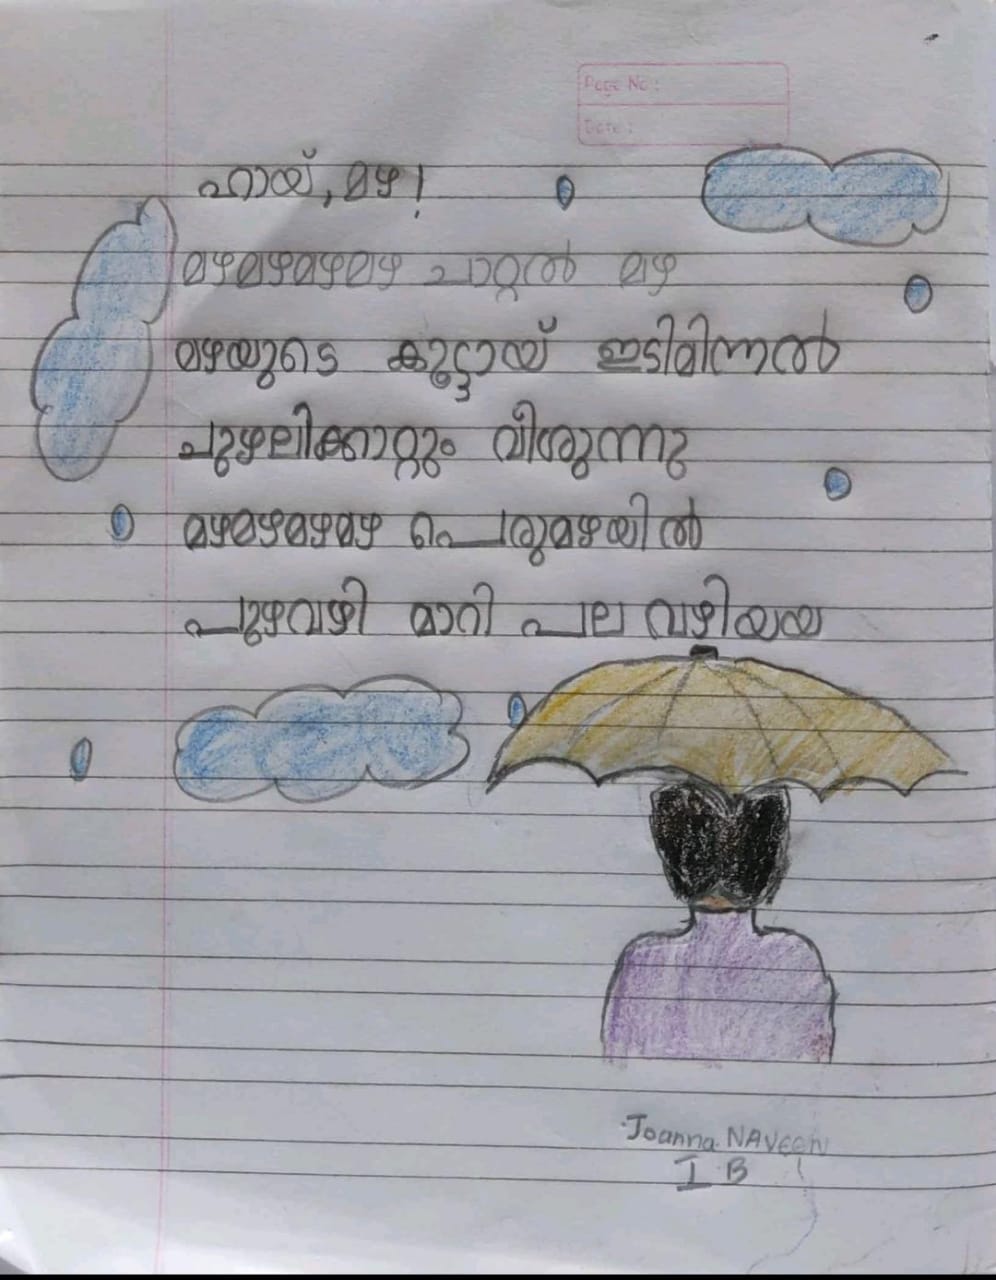 Page No :
Date :
ഹായ്, മഴ!
മഴമഴമഴമഴ ചാറ്റൽ മഴ
മഴയുടെ കൂട്ടായ് ഇടിമിന്നൽ
ചുഴലിക്കാറ്റും വീശുന്നു
മഴമഴമഴമഴ പെരുമഴയിൽ
പുഴവഴി മാറി പല വഴിയായ
Joanna NAVEEN
I B